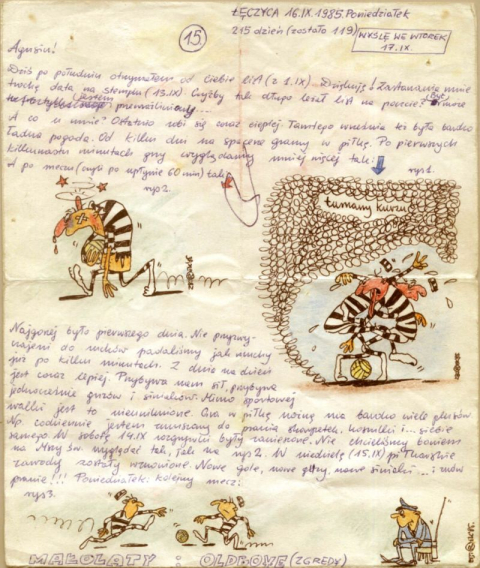 ŁĘCZYCA 16.IX.1985. Poniedziałek
15.
215 dzień (zostało 119)
WYŚLĘ WE WTOREK
17.IX.
Agusiu!
Dziś po południu otrzymałem od Ciebie list (z 1.IX). Dziękuję! Zastanawia mnie
trochę data na stemplu (13.IX). Czyżby tak długo leżał list na poczcie? A może
A co u mnie? Ostatnio robi się coraz cieplej. Tamtego września też było bardzo
ładna pogoda. Od kilku dni na spacerze gramy w piłkę. Po pierwszych
kilkunastu minutach gry wyglądamy mniej więcej tak:
rys1.
A po meczu (czyli po upływie 60 min) tak:
rys2.
tumany kurzu
Najgorzej było pierwszego dnia. Nie przyzwy-
czajeni do ruchów padaliśmy jak muchy
już po kilku minutach. Z dnia na dzień
jest coraz lepiej. Przybywa nam sił, przybywa
jednocześnie guzów i siniaków. Mimo sportowej
walki jest to nieuniknione. Gra w piłkę nożną ma bardzo wiele plusów.
Np. codziennie jestem zmuszony do prania skarpetek, koszulki i... siebie
samego. W sobotę 14.IX rozgrywki były zawieszone. Nie chcieliśmy bowiem
na Mszy Św. wyglądać tak, jak na rys2. W niedzielę (15.IX) piłkarskie
zawody zostały wznowione. Nowe gole, nowe guzy, nowe siniaki... i znów
pranie!!! Poniedziałek: kolejny mecz:
rys3.
MAŁOLATY : OLDBOYE (ZGREDY)